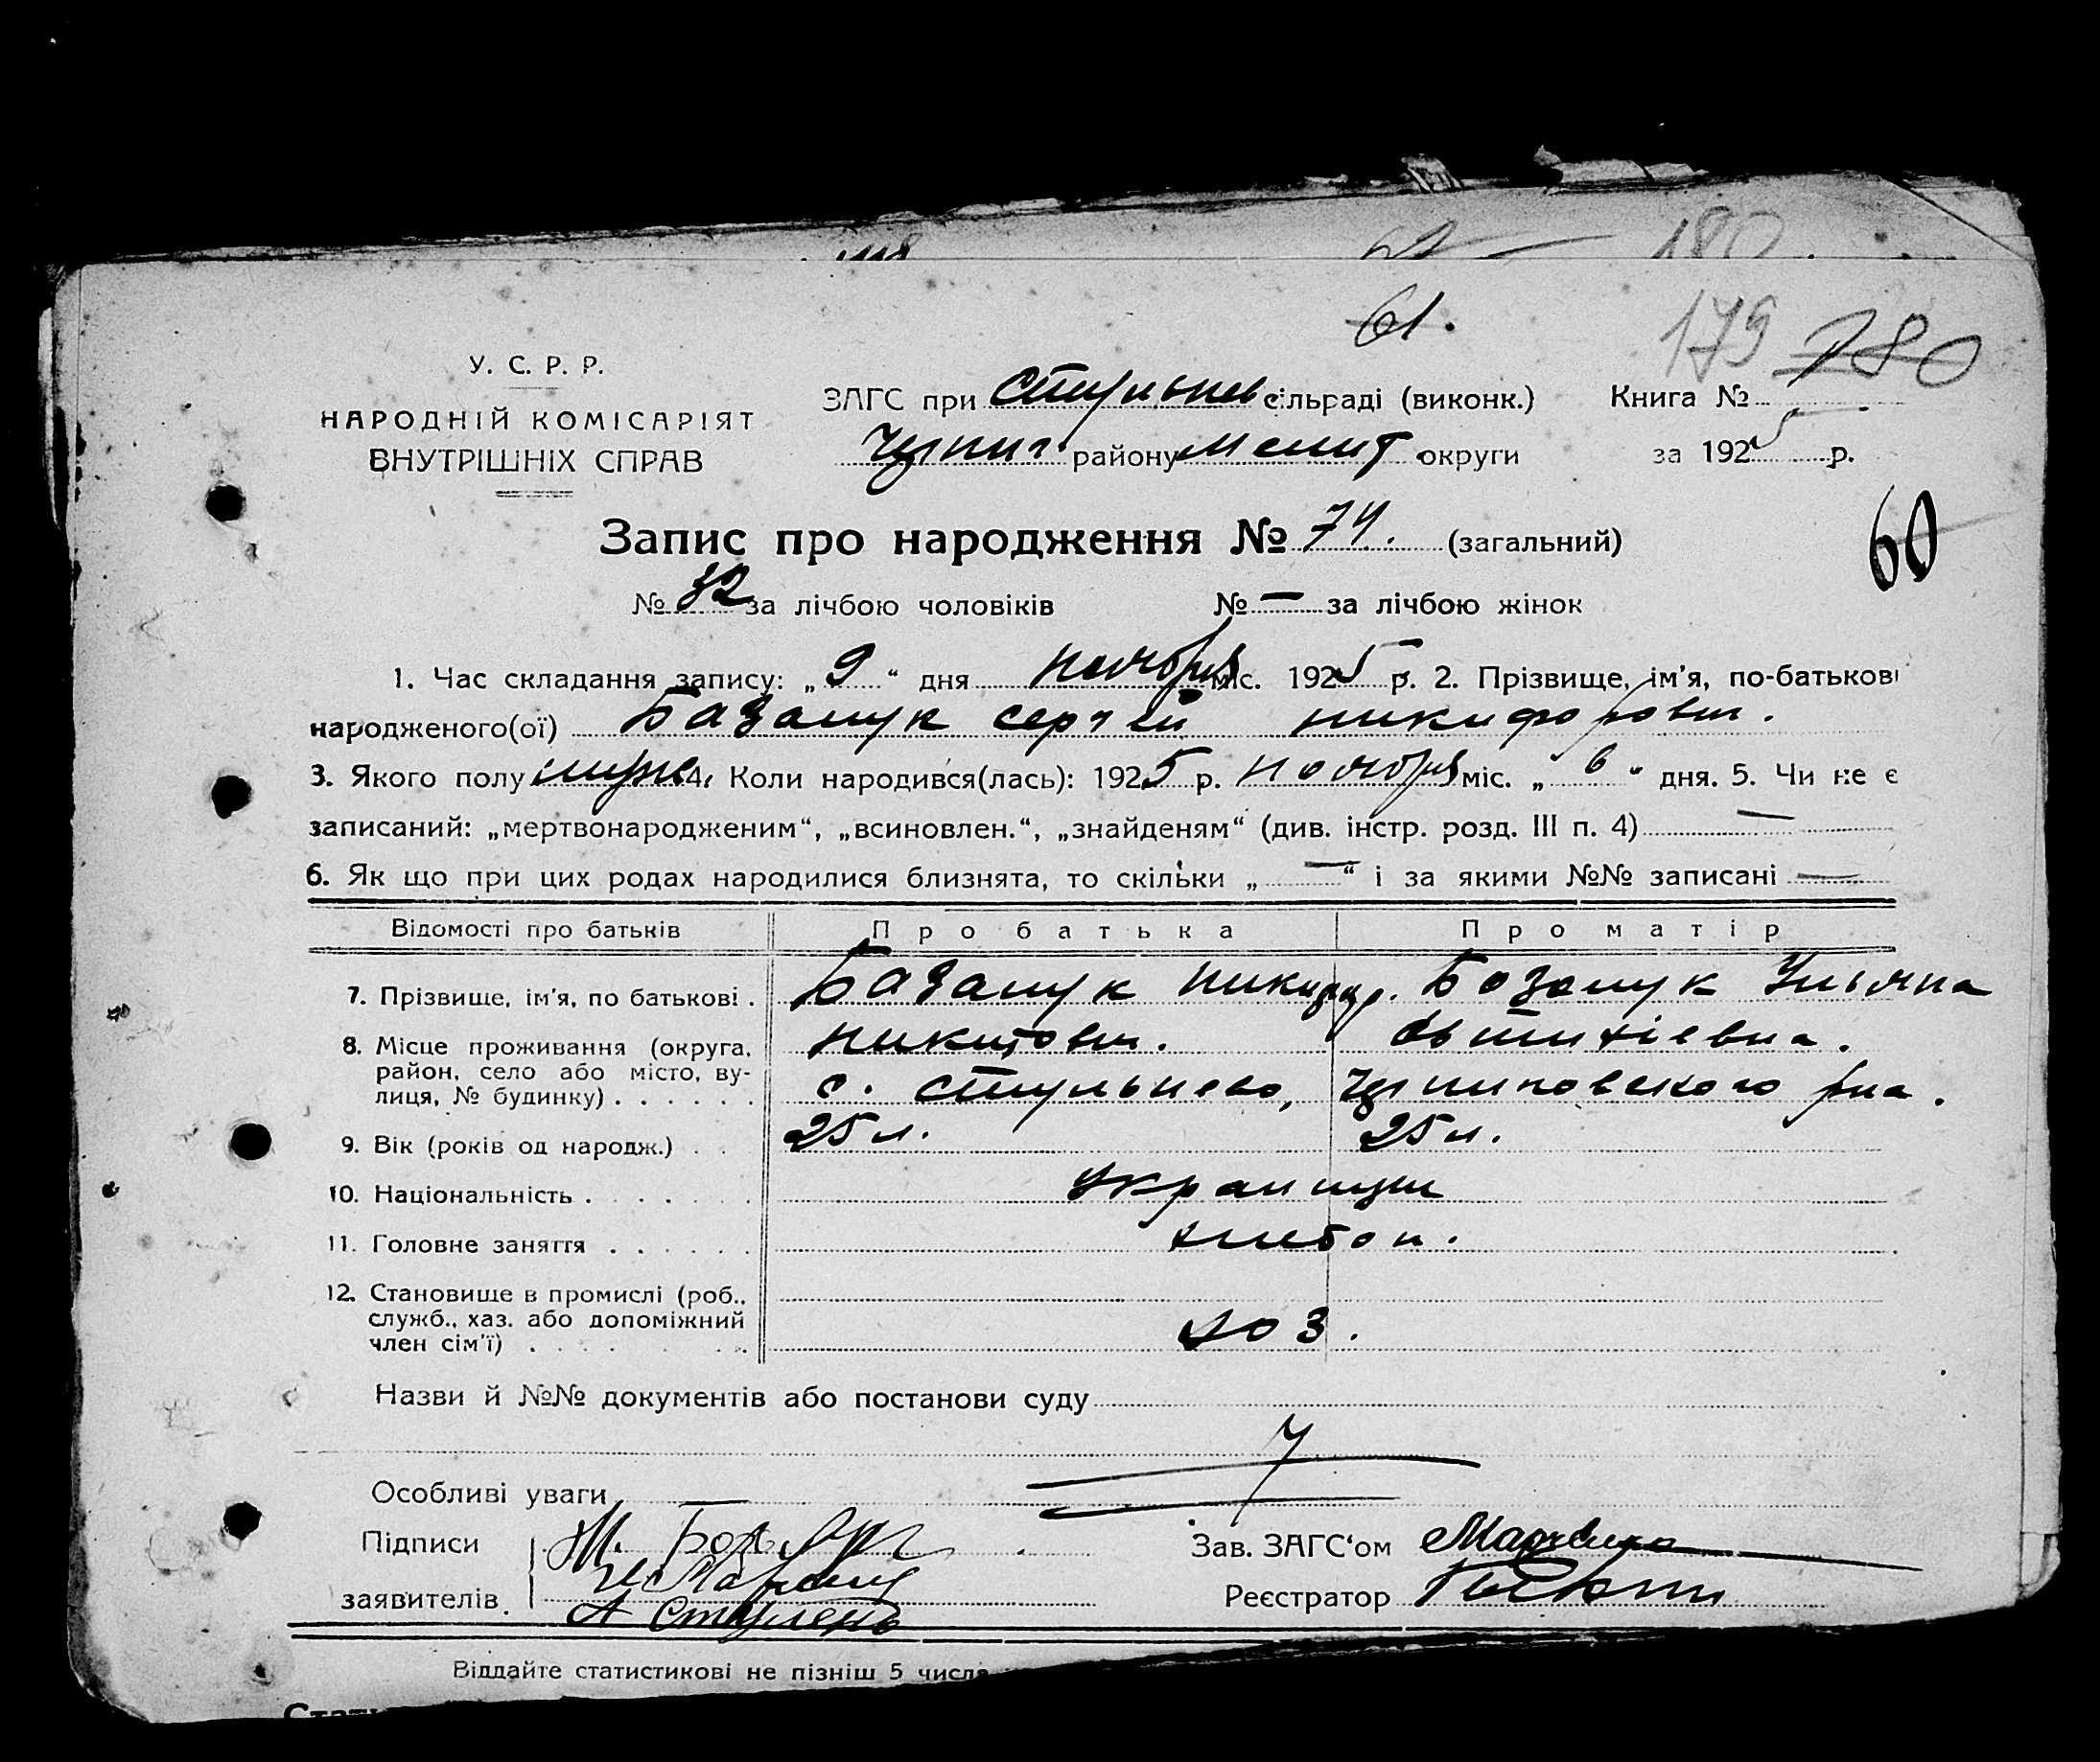 180
61.
179 180
У. С. Р. Р.
НАРОДНІЙ КОМІСАРІЯТ
ВНУТРІШНІХ СПРАВ
ЗАГС при Стульнев сільраді (виконк.) Книга №
району Мелит округи за 1925 р.
Запис про народження № 74. (загальний)
60
№ 32 за лічбою чоловіків № — за лічбою жінок
1. Час складання запису: „ 9 “ дня ноября міс. 1925 р. 2. Прізвище, ім'я, по-батькові
народженого(ої) Базалук Сергей Никифорович.
3. Якого полу муж 4. Коли народився(лась): 1925 р. ноября міс. „ 6 “ дня. 5. Чи не є
записаний: „мертвонародженим“, „всиновлен.“, „знайденям“ (див. інстр. розд. III п. 4) —
6. Як що при цих родах народилися близнята, то скільки „ — “ і за якими №№ записані —
Відомості про батьків Про батька Про матір
7. Прізвище, ім'я, по батькові . Базалук Никифор. Бозолук Ульяна
8. Місце проживання (округа, район, село або місто, вулиця, № будинку) . . . . . . Никитович.
с. Стульнево, района.
9. Вік (років од народж.) . . 25 л. 25 л.
10. Національність . . . . . . украинцы
11. Головне заняття . . . . . . хлебоп.
12. Становище в промислі (роб.,
служб., хаз. або допоміжний
член сім'ї) . . . . . . хоз.
Назви й №№ документів або постанови суду
Особливі уваги —
Підписи
заявителів.
Зав. ЗАГС‘ом
Реєстратор
Віддайте статистикові не пізніш 5 числа